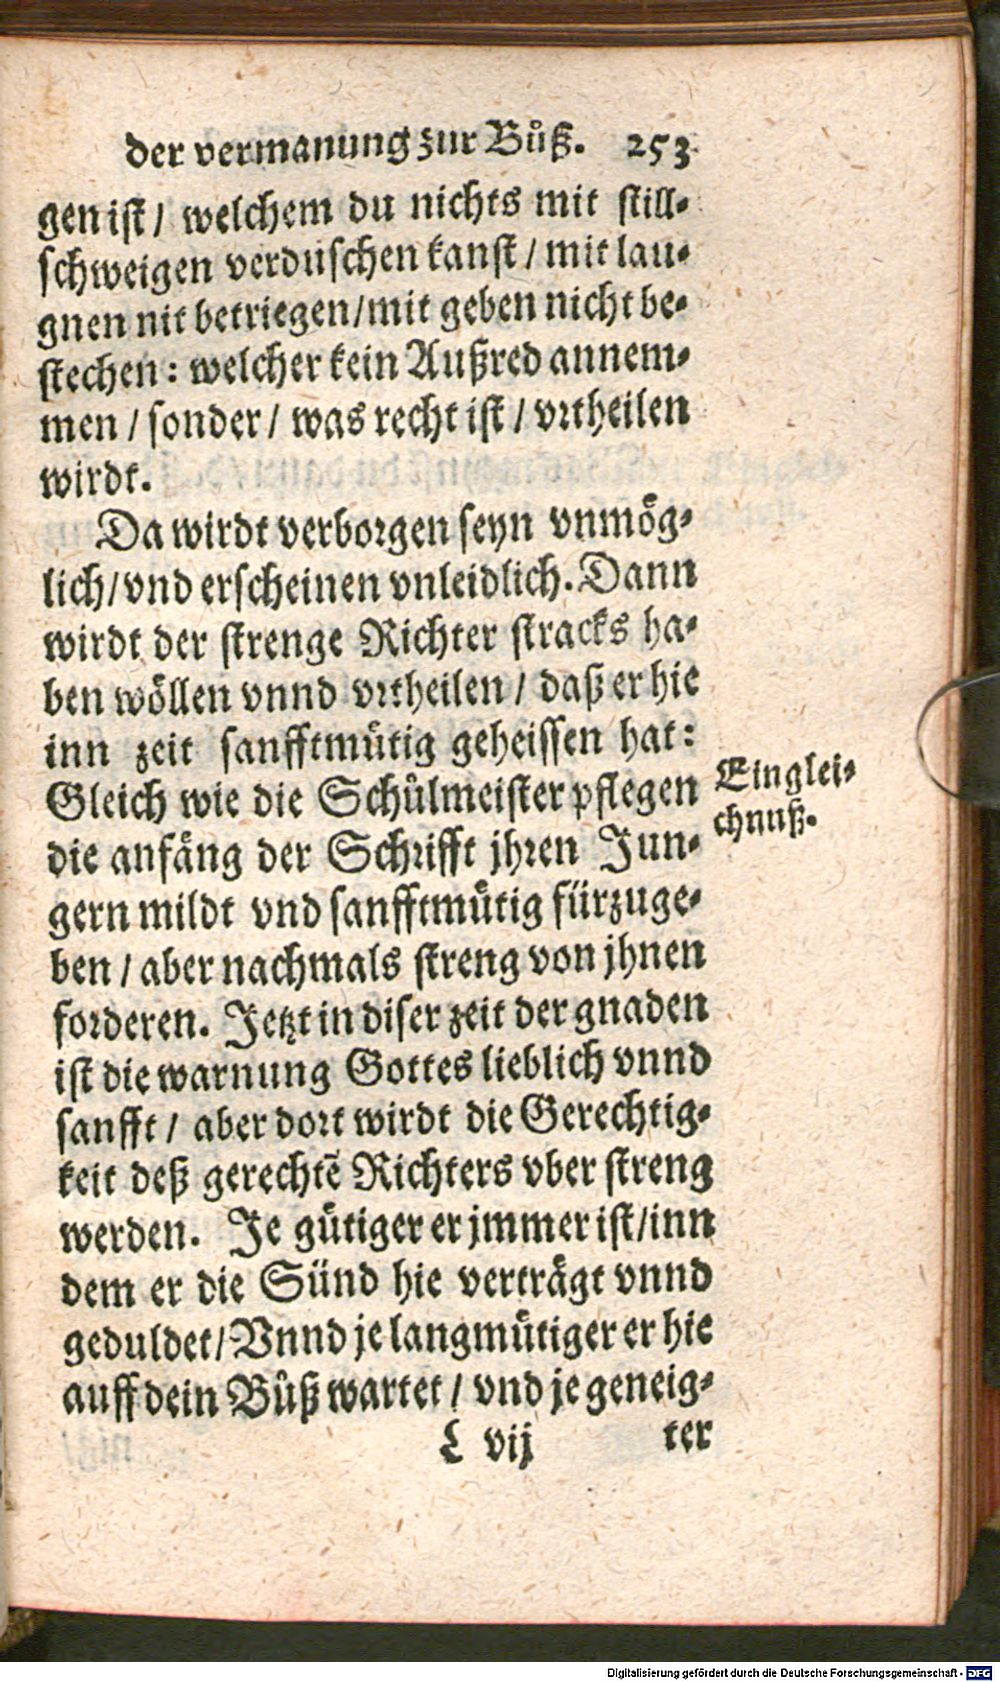 der vermanung zur Bůß. 253
gen ist / welchem du nichts mit still⸗
schweigen verduschen kanst / mit lau⸗
gnen nit betriegen/mit geben nicht be⸗
stechen: welcher kein Außred annem⸗
men / sonder / was recht ist / vrtheilen
wirdt.
Da wirdt verborgen seyn vnmög⸗
lich/vnd erscheinen vnleidlich. Dann
wirdt der strenge Richter stracks ha⸗
ben wöllen vnnd vrtheilen / daß er hie
inn zeit sanfftmütig geheissen hat:
Gleich wie die Schůlmeister pflegen
die anfäng der Schrifft jhren Jun⸗
gern mildt vnd sanfftmütig fürzuge⸗
ben / aber nachmals streng von jhnen
forderen. Jetzt in diser zeit der gnaden
ist die warnung Gottes lieblich vnnd
sanfft / aber dort wirdt die Gerechtig⸗
keit deß gerechtē Richters vber streng
werden. Je gütiger er jmmer ist/inn
dem er die Sünd hie verträgt vnnd
geduldet/Vnnd je langmütiger er hie
auff dein Bůß wartet / vnd je geneig⸗
L vij ter
Ein glei⸗
chnuß.
Digitalisierung gefördert durch die Deutsche Forschungsgemeinschaft - DFG